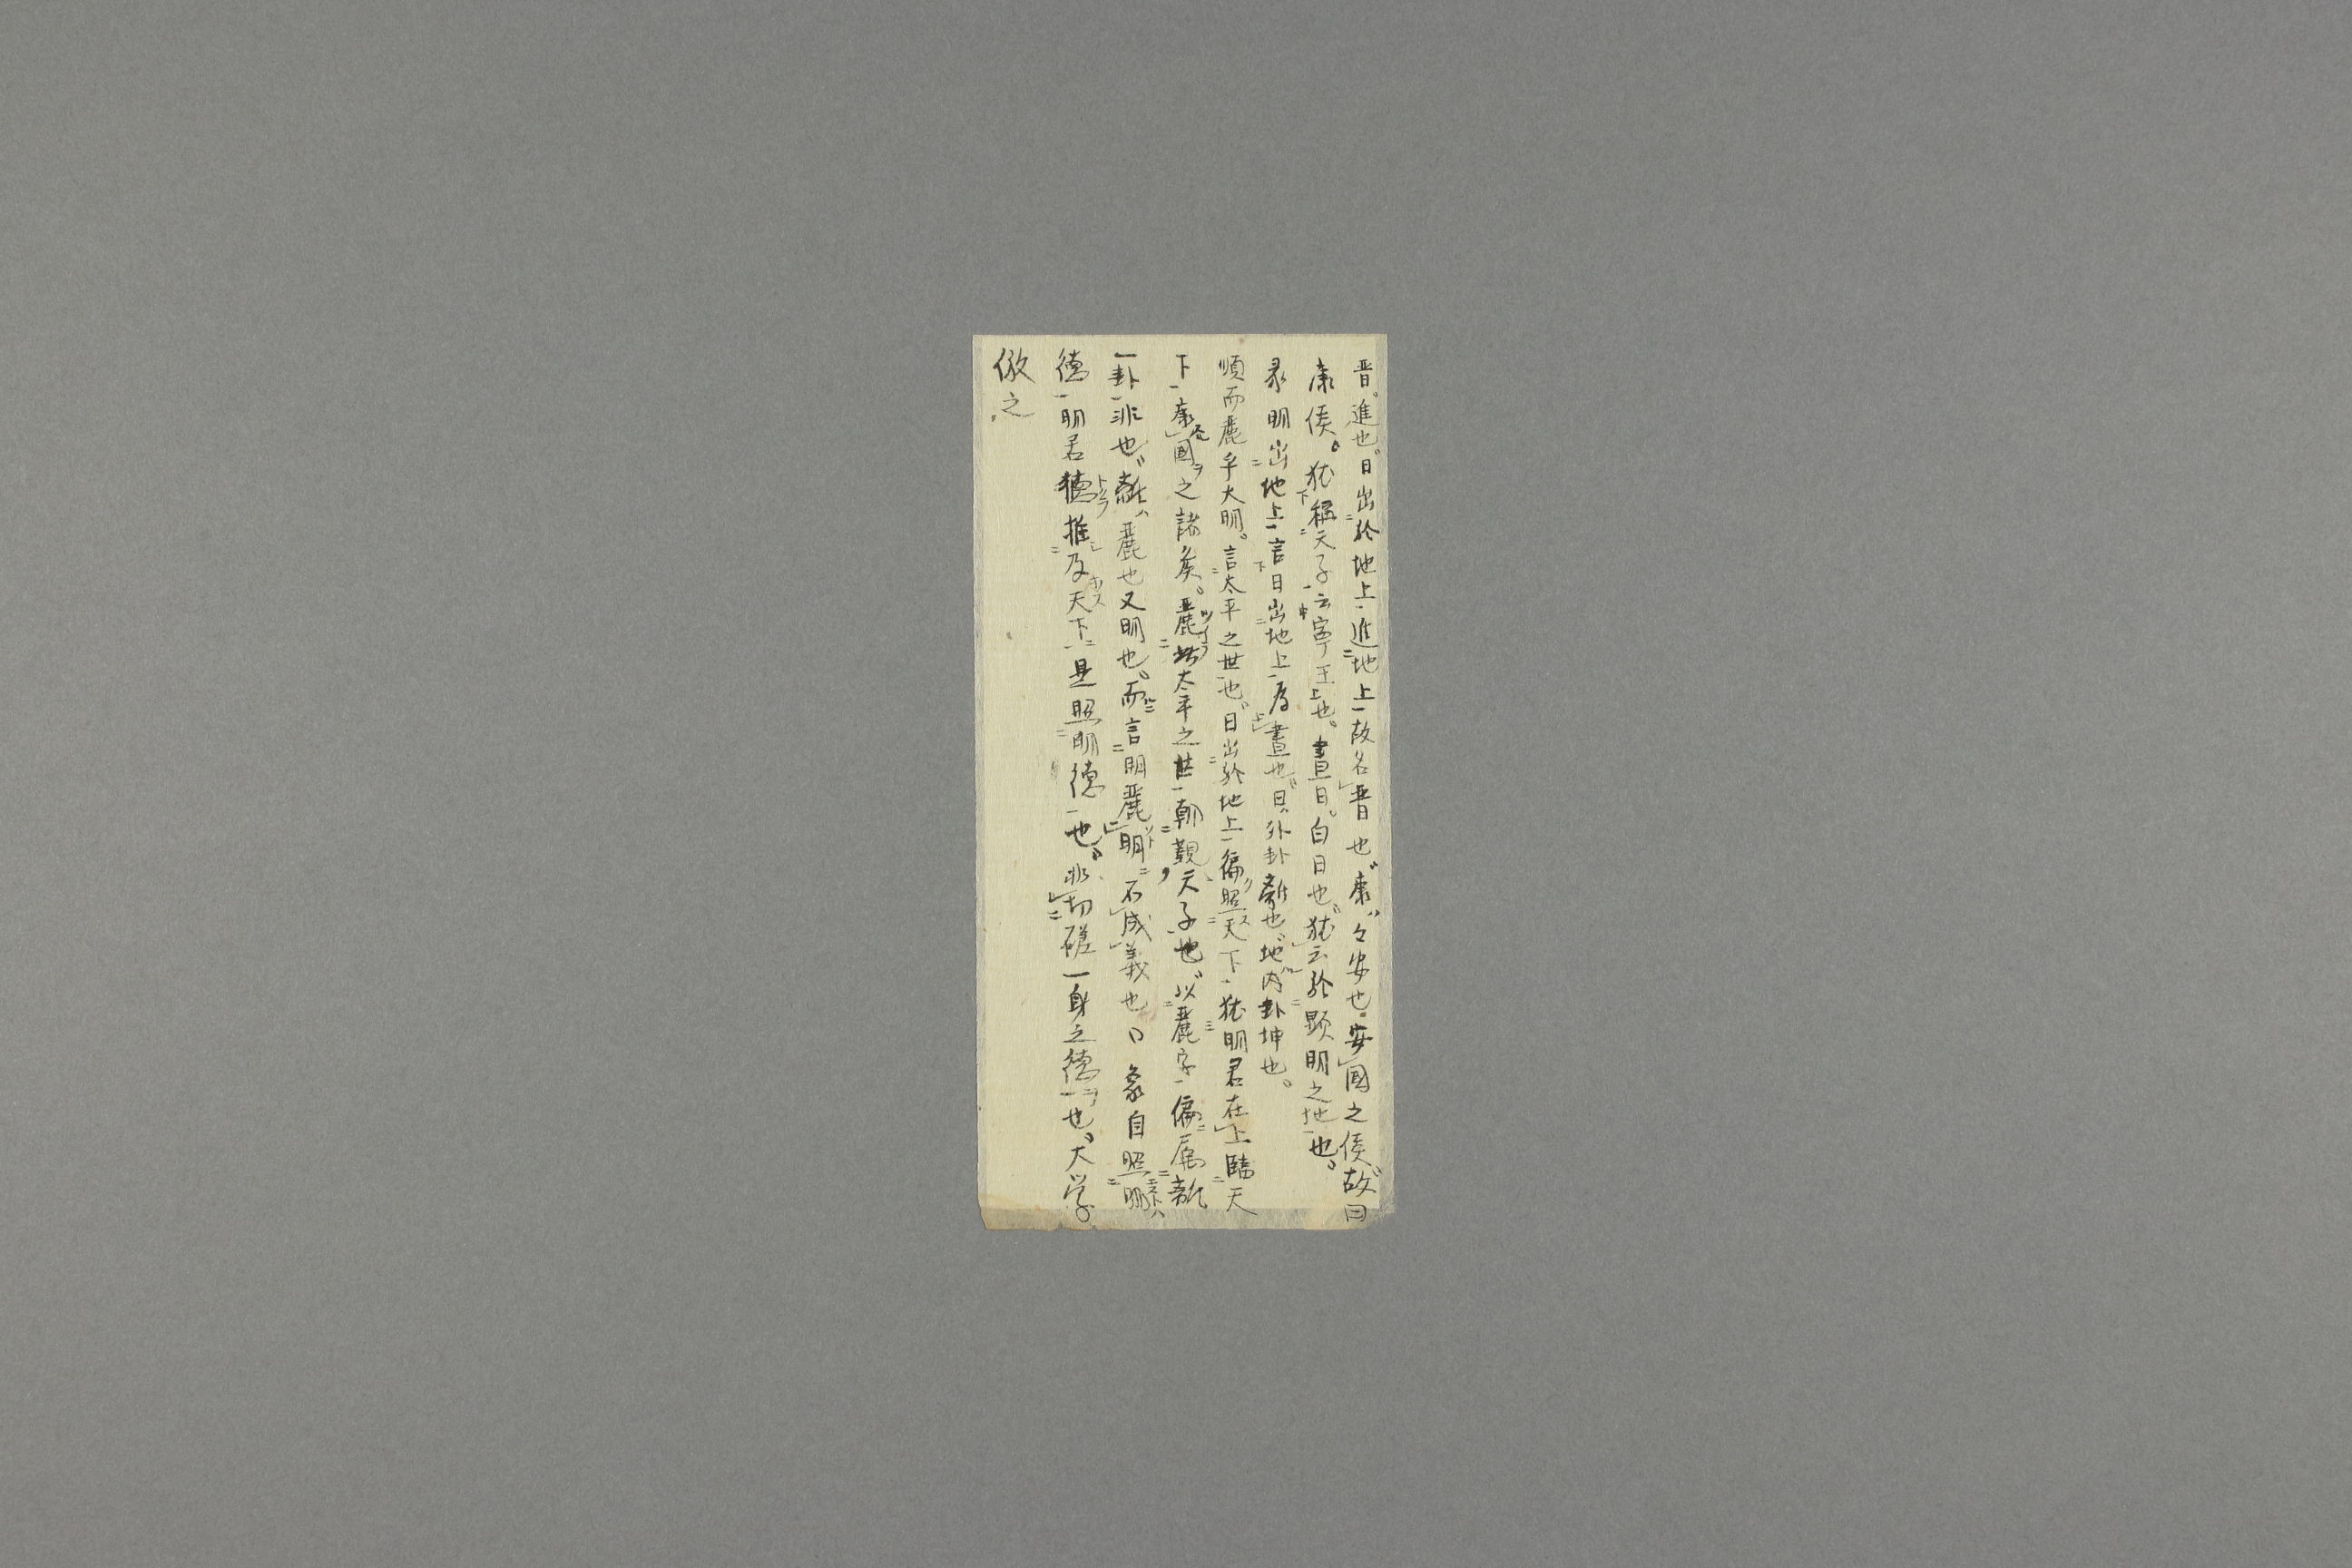 晋。進也。日出於地上進地上故名晋也。康々安也。安国之侯故曰
康侯。猶稱天子云寧王也。晝日。白日也。猶云於顕明之地也。
彖明出地上言日出地上為晝也。日外卦離也。地内卦坤也。
順而麗乎大明。言太平之世也。日出於地上徧照天下猶明君在上臨天
下康国之諸矦。麗此太平之世朝覲天子也。以麗字偏属離
一卦非也。離麗也又明也。而言明麗明不成義也 象自照明
徳明君徳推及天下是照明徳也。非切磋一身之徳也。大学
倣之。